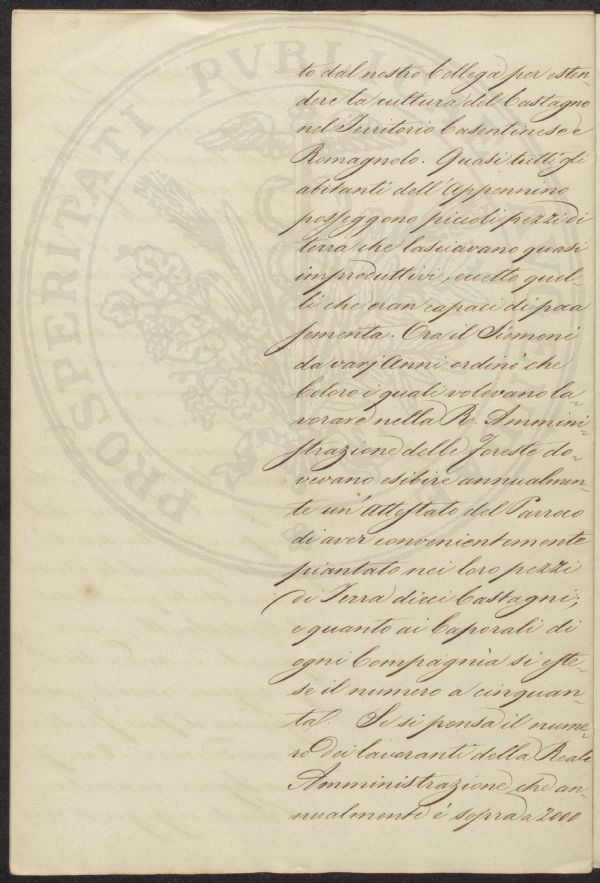 PROSPERITATI PVBLICAE
to dal nostro Collega per esten-
dere la cultura del Castagno
nel Territorio Casentinese e
Romagnolo. Quasi tutti gli
abitanti dell'Appennino
posseggono piccoli pezzi di
terra che lasciavano quasi
improduttivi, eccetto quel-
li che eran capaci di paa
sementa. Ora il Siemoni
da varj Anni ordinò che
Coloro i quali volevano la-
vorare nella R. Ammini-
strazione delle Foreste do-
vevano esibire annualmen-
te un'Attestato del Parroco
di aver convenientemente
piantato nei loro pezzi
di Terra dieci Castagni;
e quanto ai Caporali di
ogni Compagnia si este-
se il numero a cinquan-
ta. Se si pensa il nume-
ro dei lavoranti della Reale
Amministrazione che an-
nualmente è sopra a 2000